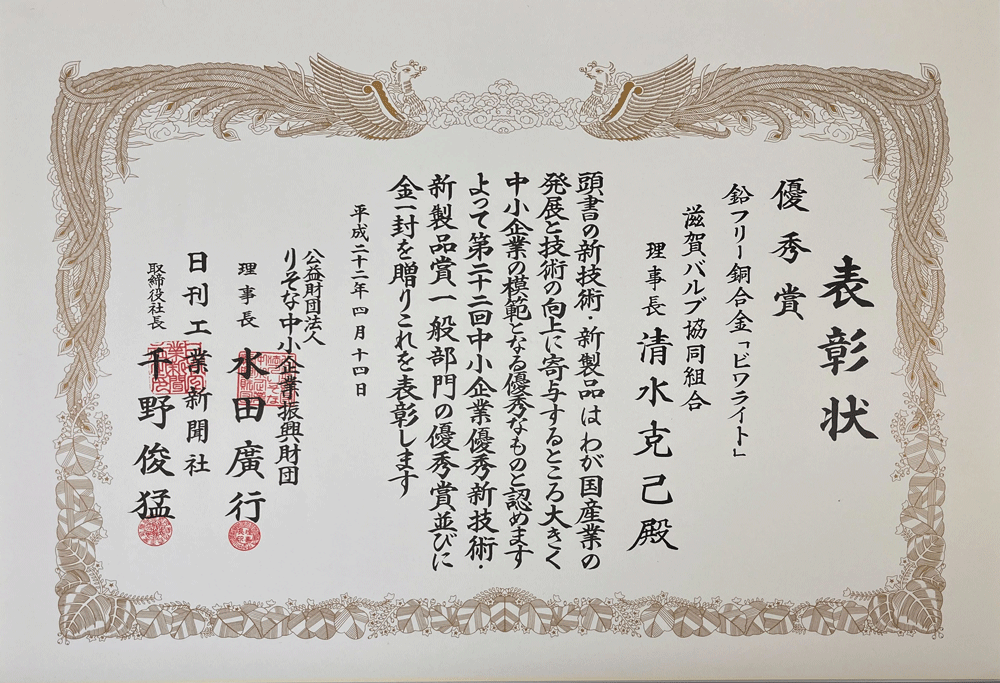 表彰状
優秀賞
鉛フリー銅合金「ビワライト」
滋賀バルブ協同組合
理事長 清水克己殿
頭書の新技術・新製品はわが国産業の
発展と技術の向上に寄与するところ大きく
中小企業の模範となる優秀なものと認めます
よって第二十二回中小企業優秀新技術・
新製品賞一般部門の優秀賞並びに
金一封を贈りこれを表彰します
平成二十二年四月十四日
公益財団法人
りそな中小企業振興財団
理事長 水田廣行
日刊工業新聞社
取締役社長 千野俊猛